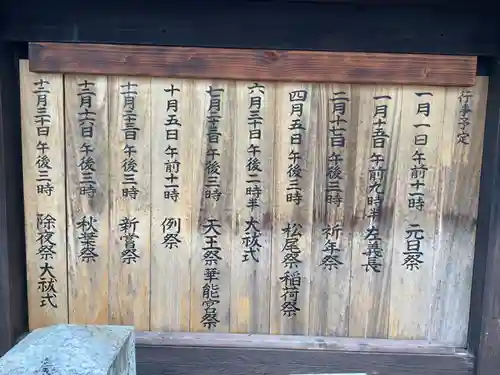 行事予定
一月一日 午前十一時 元旦祭
一月十五日 午前九時半 左義長
二月十七日 午後二時 祈年祭
四月五日 午後三時 松尾祭稲荷祭
六月三十日 午後二時半 大祓式
七月二十三日 午後三時 天王祭華能宮祭
十月五日 午前十一時 例祭
十一月二十三日 午後三時 新嘗祭
十二月十六日 午後三時 秋葉祭
十二月三十一日 午後三時 除夜祭大祓式